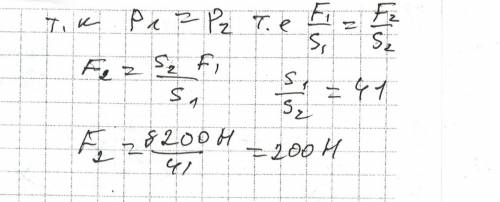 т.к P₁ = P₂ т.е F₁/S₁ = F₂/S₂
F₂ = S₂ F₁/S₁ S₁/S₂ = 41
F₂ = 8200Н/41 = 200Н